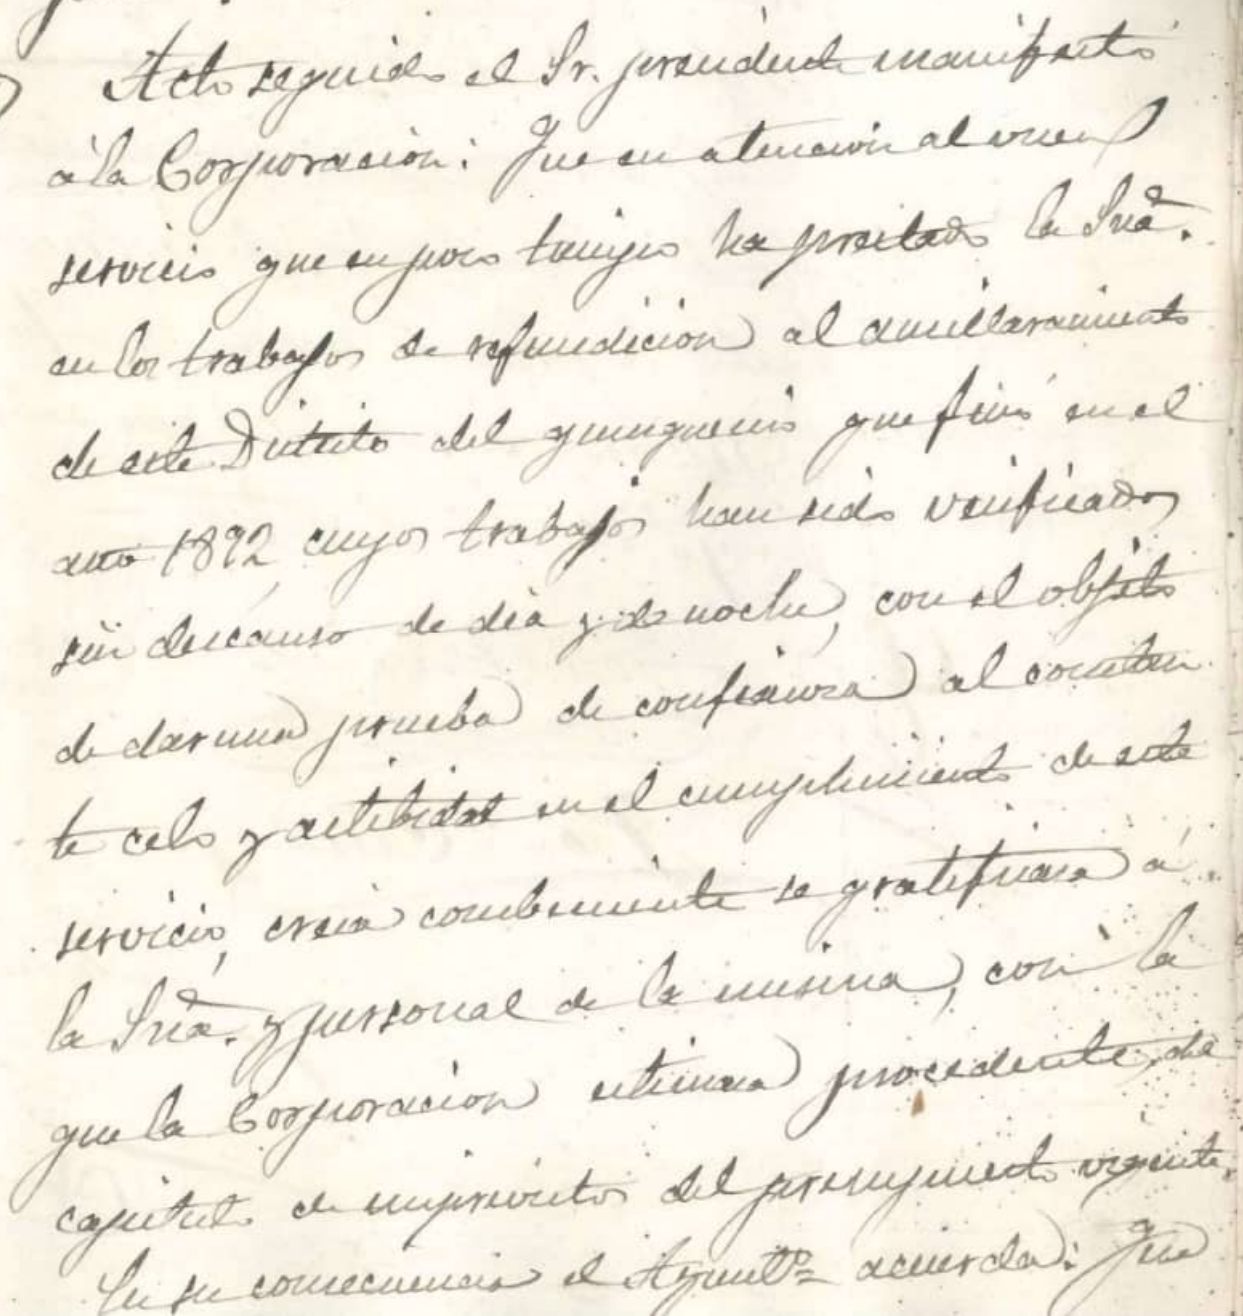 Acto seguido el Sr. presidente manifestó
á la Corporacion: Que en atencion al vuen
servicio que en poco tiempo ha prestado la Sriá.
en los trabajos de refundicion al amillaramiento
de este Distrito del quinquenio que finó en el
año 1892 cuyos trabajos han sido verificados
sin descanso de dia y de noche, con el objeto
de dar una prueba de confianza al constan
te celo y actibidad en el cumplimiento de este
servicio, creia combeniente se gratificara á
la Sriá. y personal de la misma, con la
que la Corporacion estimara procedente, del
capitulo de imprevistos del presupuesto vigente.
En su consecuencia el Ayuntº = acuerda: Que